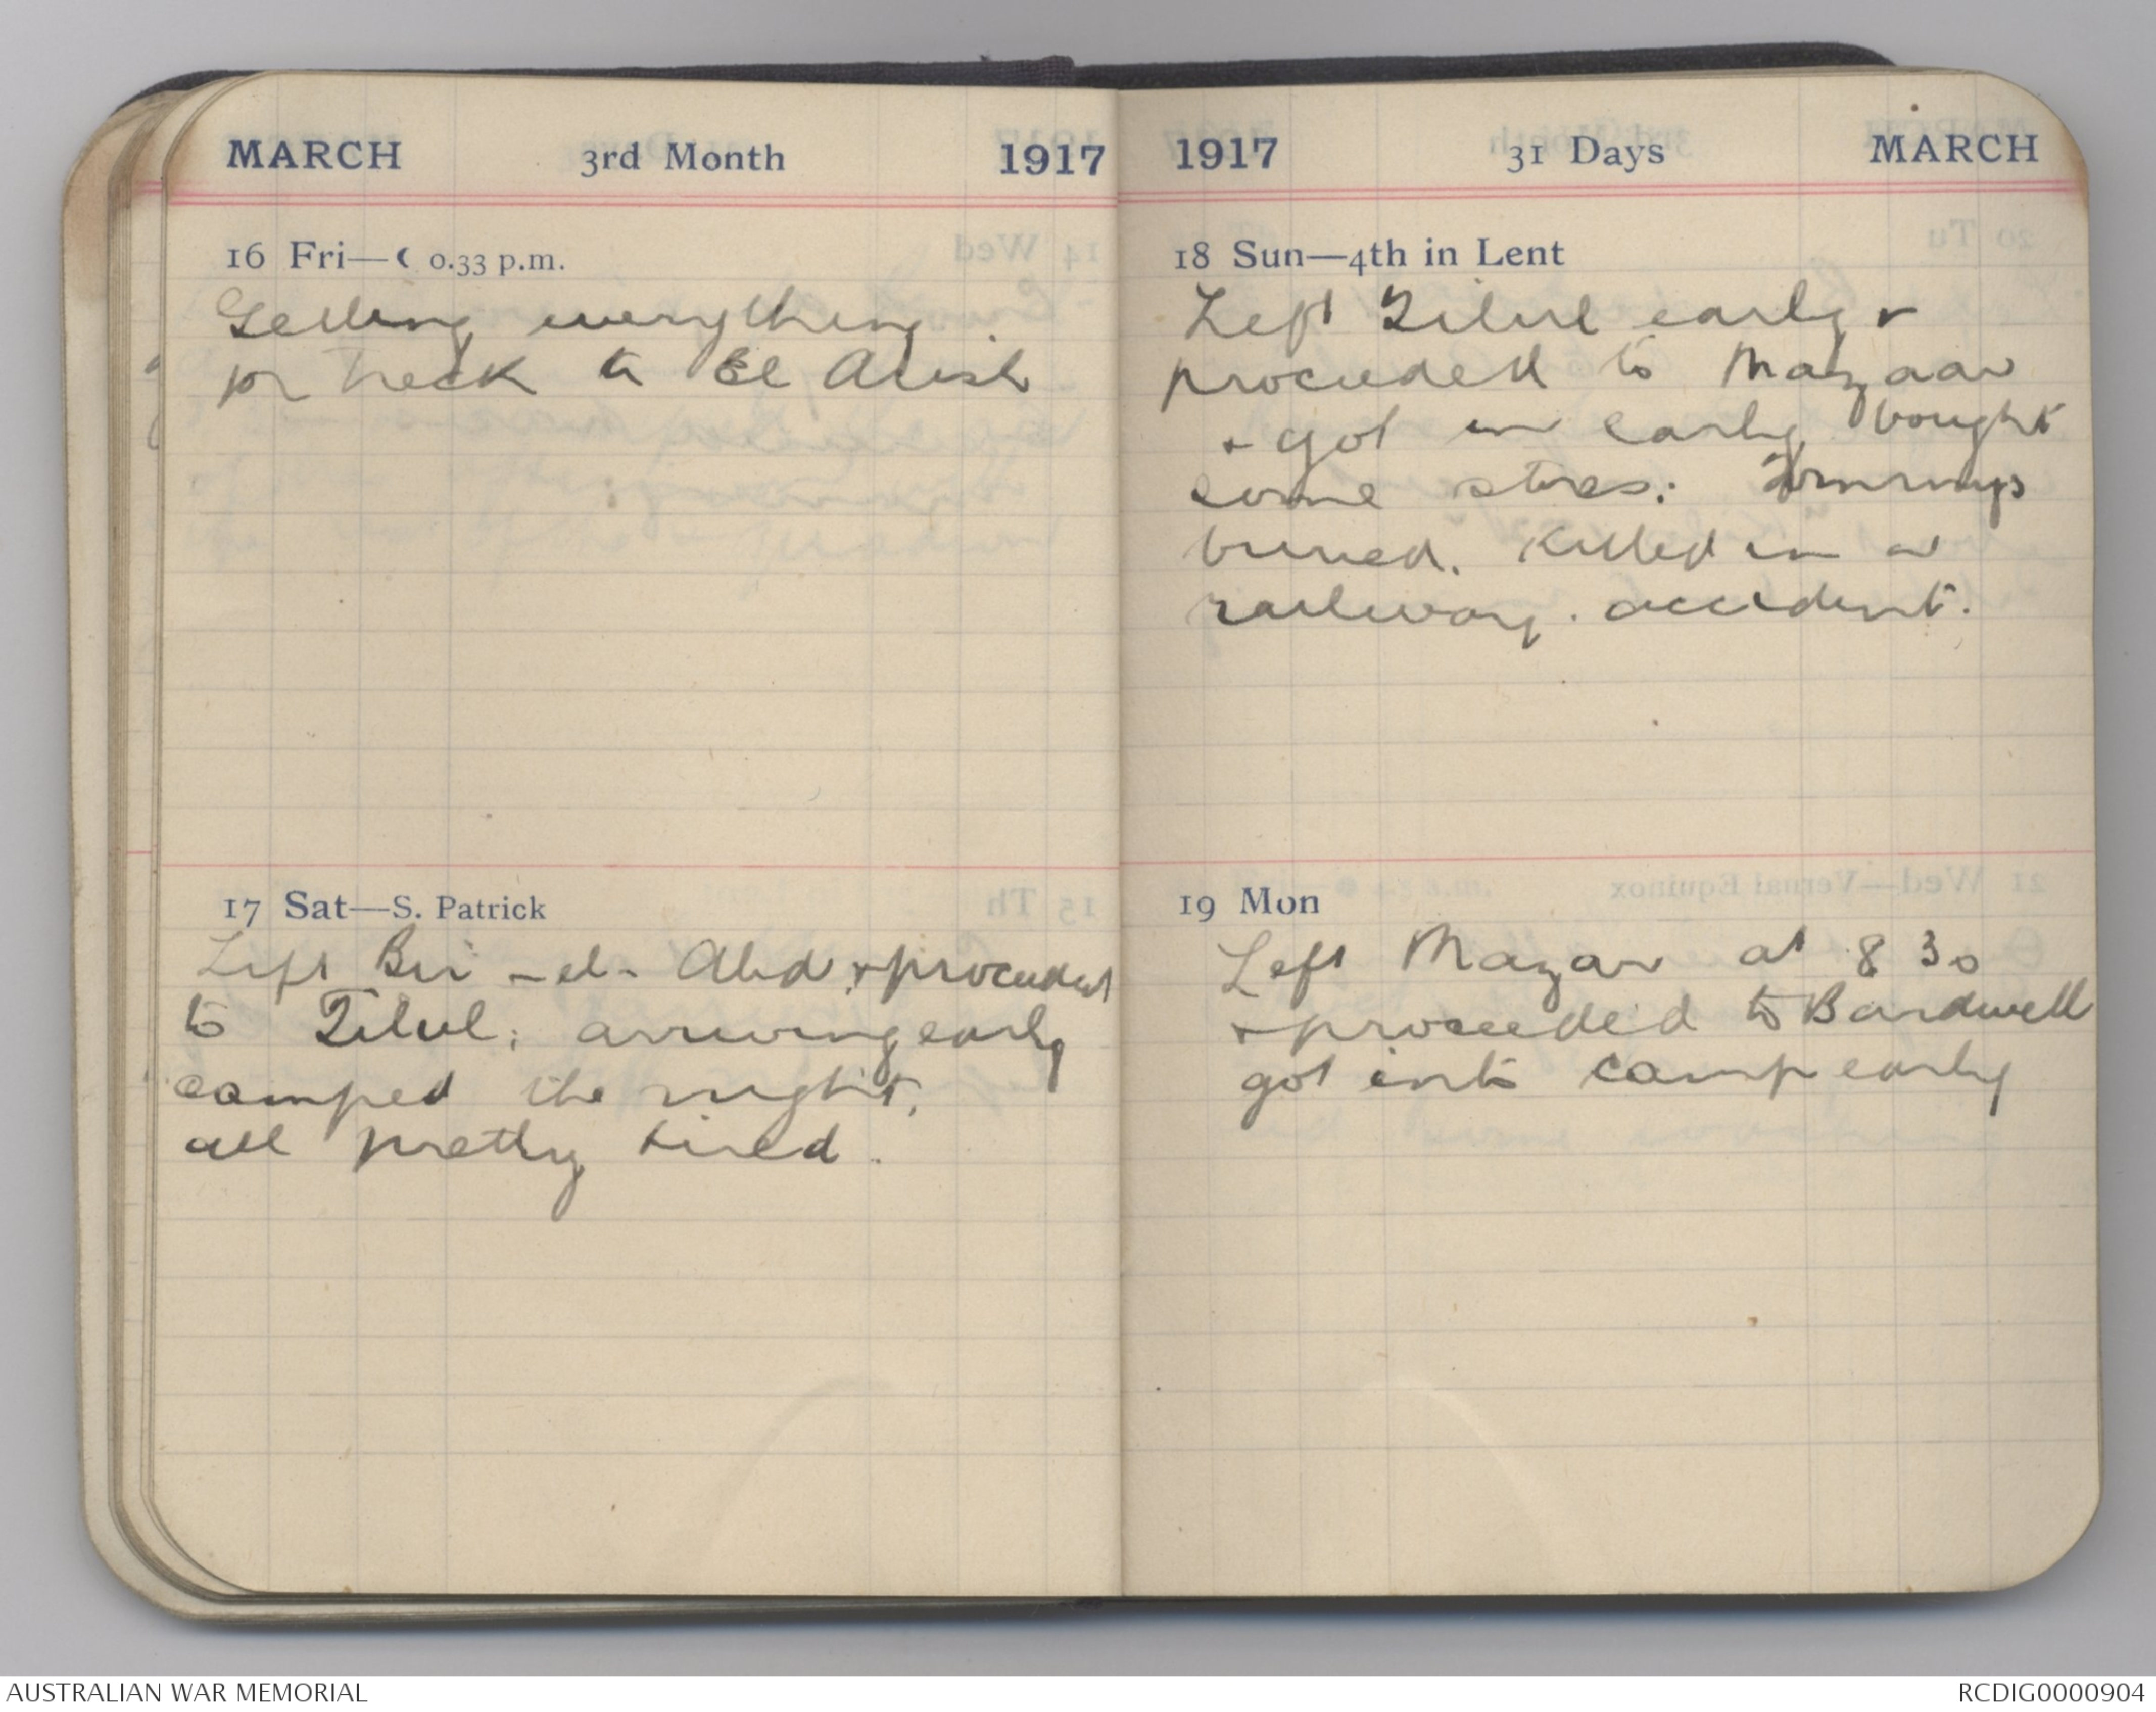 MARCH 3rd Month 1917
16 Fri—☾ 0.33 p.m.
Getting everything
for treck to El Arish
17 Sat—S. Patrick
Left Bir-el-Abd & proceeded
to Tilul; arriving early
camped the night,
all pretty tired.
1917 31 Days MARCH
18 Sun—4th in Lent
Left Tilul early &
proceeded to Mazaar
& got in early bought
some stores:
buried. Killed in a
railway. accident.
19 Mon
Left Mazar at 8 30
& proceeded to Bardwell
got into camp early
AUSTRALIAN WAR MEMORIAL
RCDIG0000904